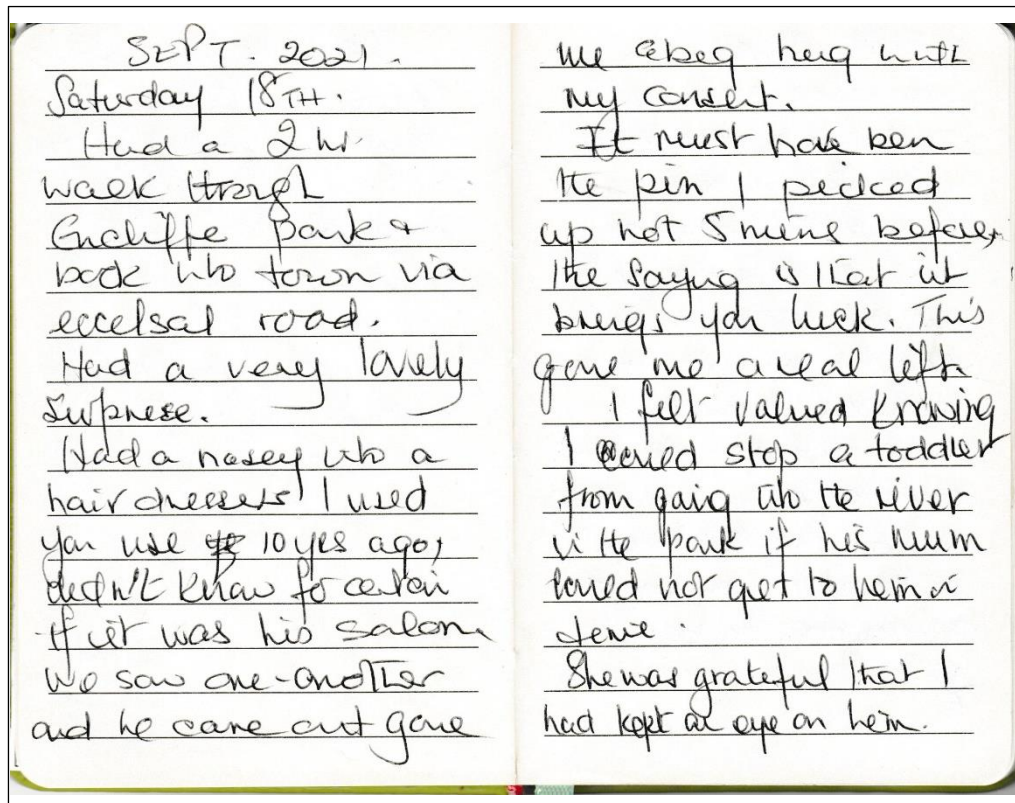 SEPT. 2021.
Saturday 18TH.
Had a 2 hr.
walk through
Encliffe Park &
back into town via
eccelsal road.
Had a very lovely
surprise.
Had a nosey into a
hairdressers I used
you use 10 yrs ago,
didn't know for certain
if it was his salon.
We saw one-another
and he came out gave
me a beg hug with
my consent.
It must have ben
the pin I picked
up not 5 mins before,
the saying is that it
brings you luck. This
gave me a real lift.
I felt valued knowing
I could stop a toddler
from going into the river
in the park if his mum
could not get to him in
time.
She was grateful that I
had kept an eye on him.